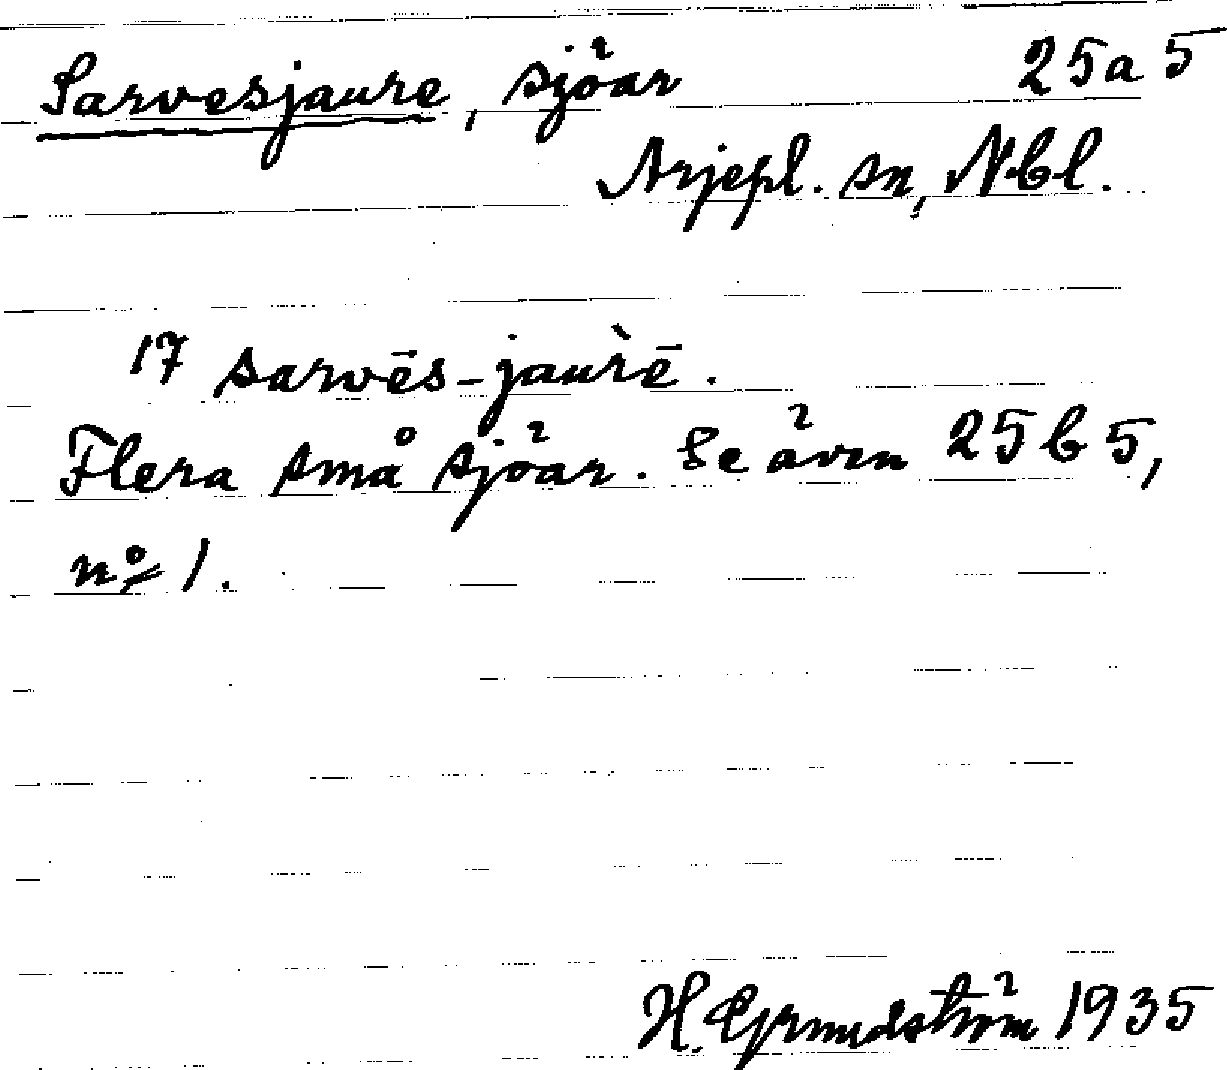 Sarvesjaure, sjöar 25a5
Arjepl. sn, Nbl.
17 sarvēs-jaurè̄.
Flera små sjöar. Se även 25b5,
nº 1.
H. Grundström 1935